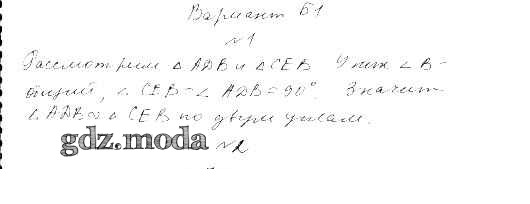 Вариант Б1
№1
Рассмотрим △ ADB и △ CEB У них ∠ B -
общий, ∠ CEB = ∠ ADB = 90°. Значит
△ ADB ∞ △ CEB по двум углам.
gdz.moda №2